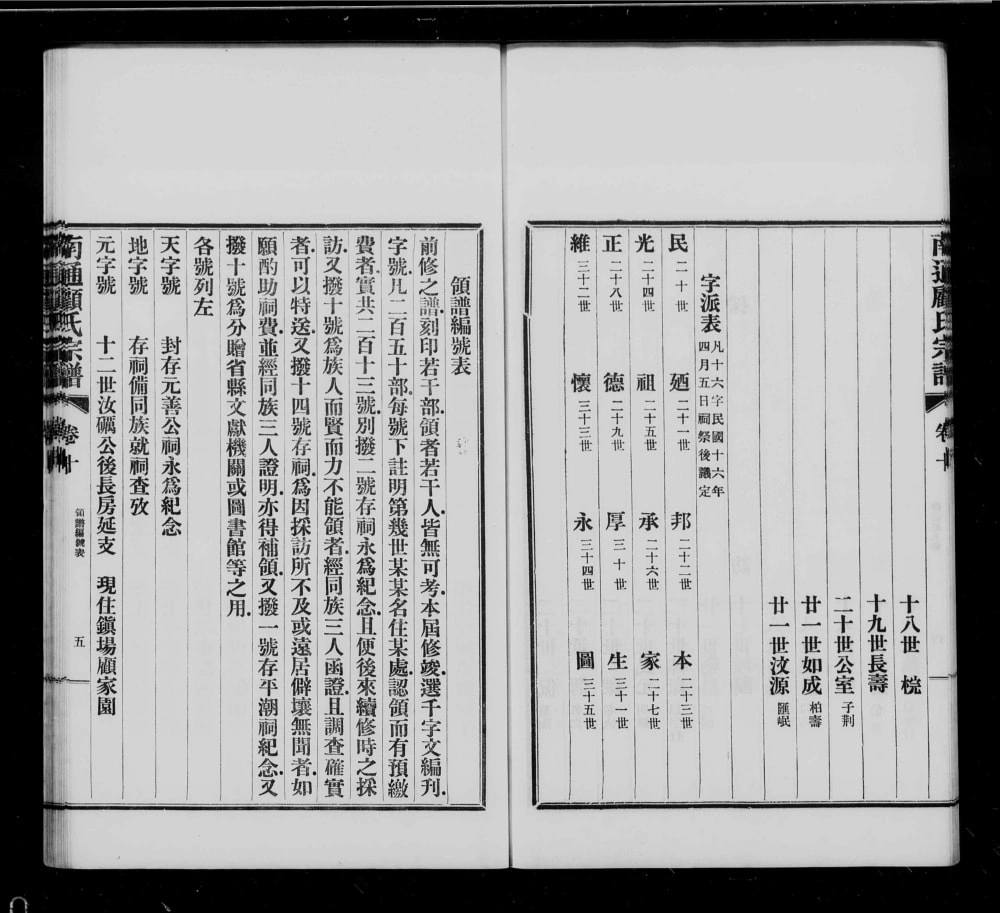 南通顧氏宗譜 卷十
十八世 梡
十九世長壽
二十世公室 子荆
廿一世如成 柏壽
廿一世汶源 匯岷
字派表 凡十六字民國十六年四月五日祠祭後議定
民 二十世 廼 二十一世 邦 二十二世 本 二十三世
光 二十四世 祖 二十五世 承 二十六世 家 二十七世
正 二十八世 德 二十九世 厚 三十世 生 三十一世
維 三十二世 懷 三十三世 永 三十四世 圖 三十五世
領譜編號表
前修之譜.刻印若干部.領者若干人.皆無可考.本屆修竣.選千字文編刋.
字號.凡二百五十部.每號下註明第幾世某某名住某處.認領而有預繳
費者.實共二百十三號.別撥二號存祠永爲紀念.且便後來續修時之採
訪.又撥十號爲族人而賢而力不能領者.經同族三人函證.且調查確實
者.可以特送.又撥十四號存祠.爲因採訪所不及或遠居僻壤無聞者.如
願酌助祠費.並經同族三人證明.亦得補領.又撥一號存平潮祠紀念.又
撥十號爲分贈省縣文獻機關或圖書館等之用.
各號列左
天字號 封存元善公祠永爲紀念
地字號 存祠備同族就祠查攷
元字號 十二世汝礪公後長房延支 現住鎭場顧家園
南通顧氏宗譜 卷十 領譜編號表 五